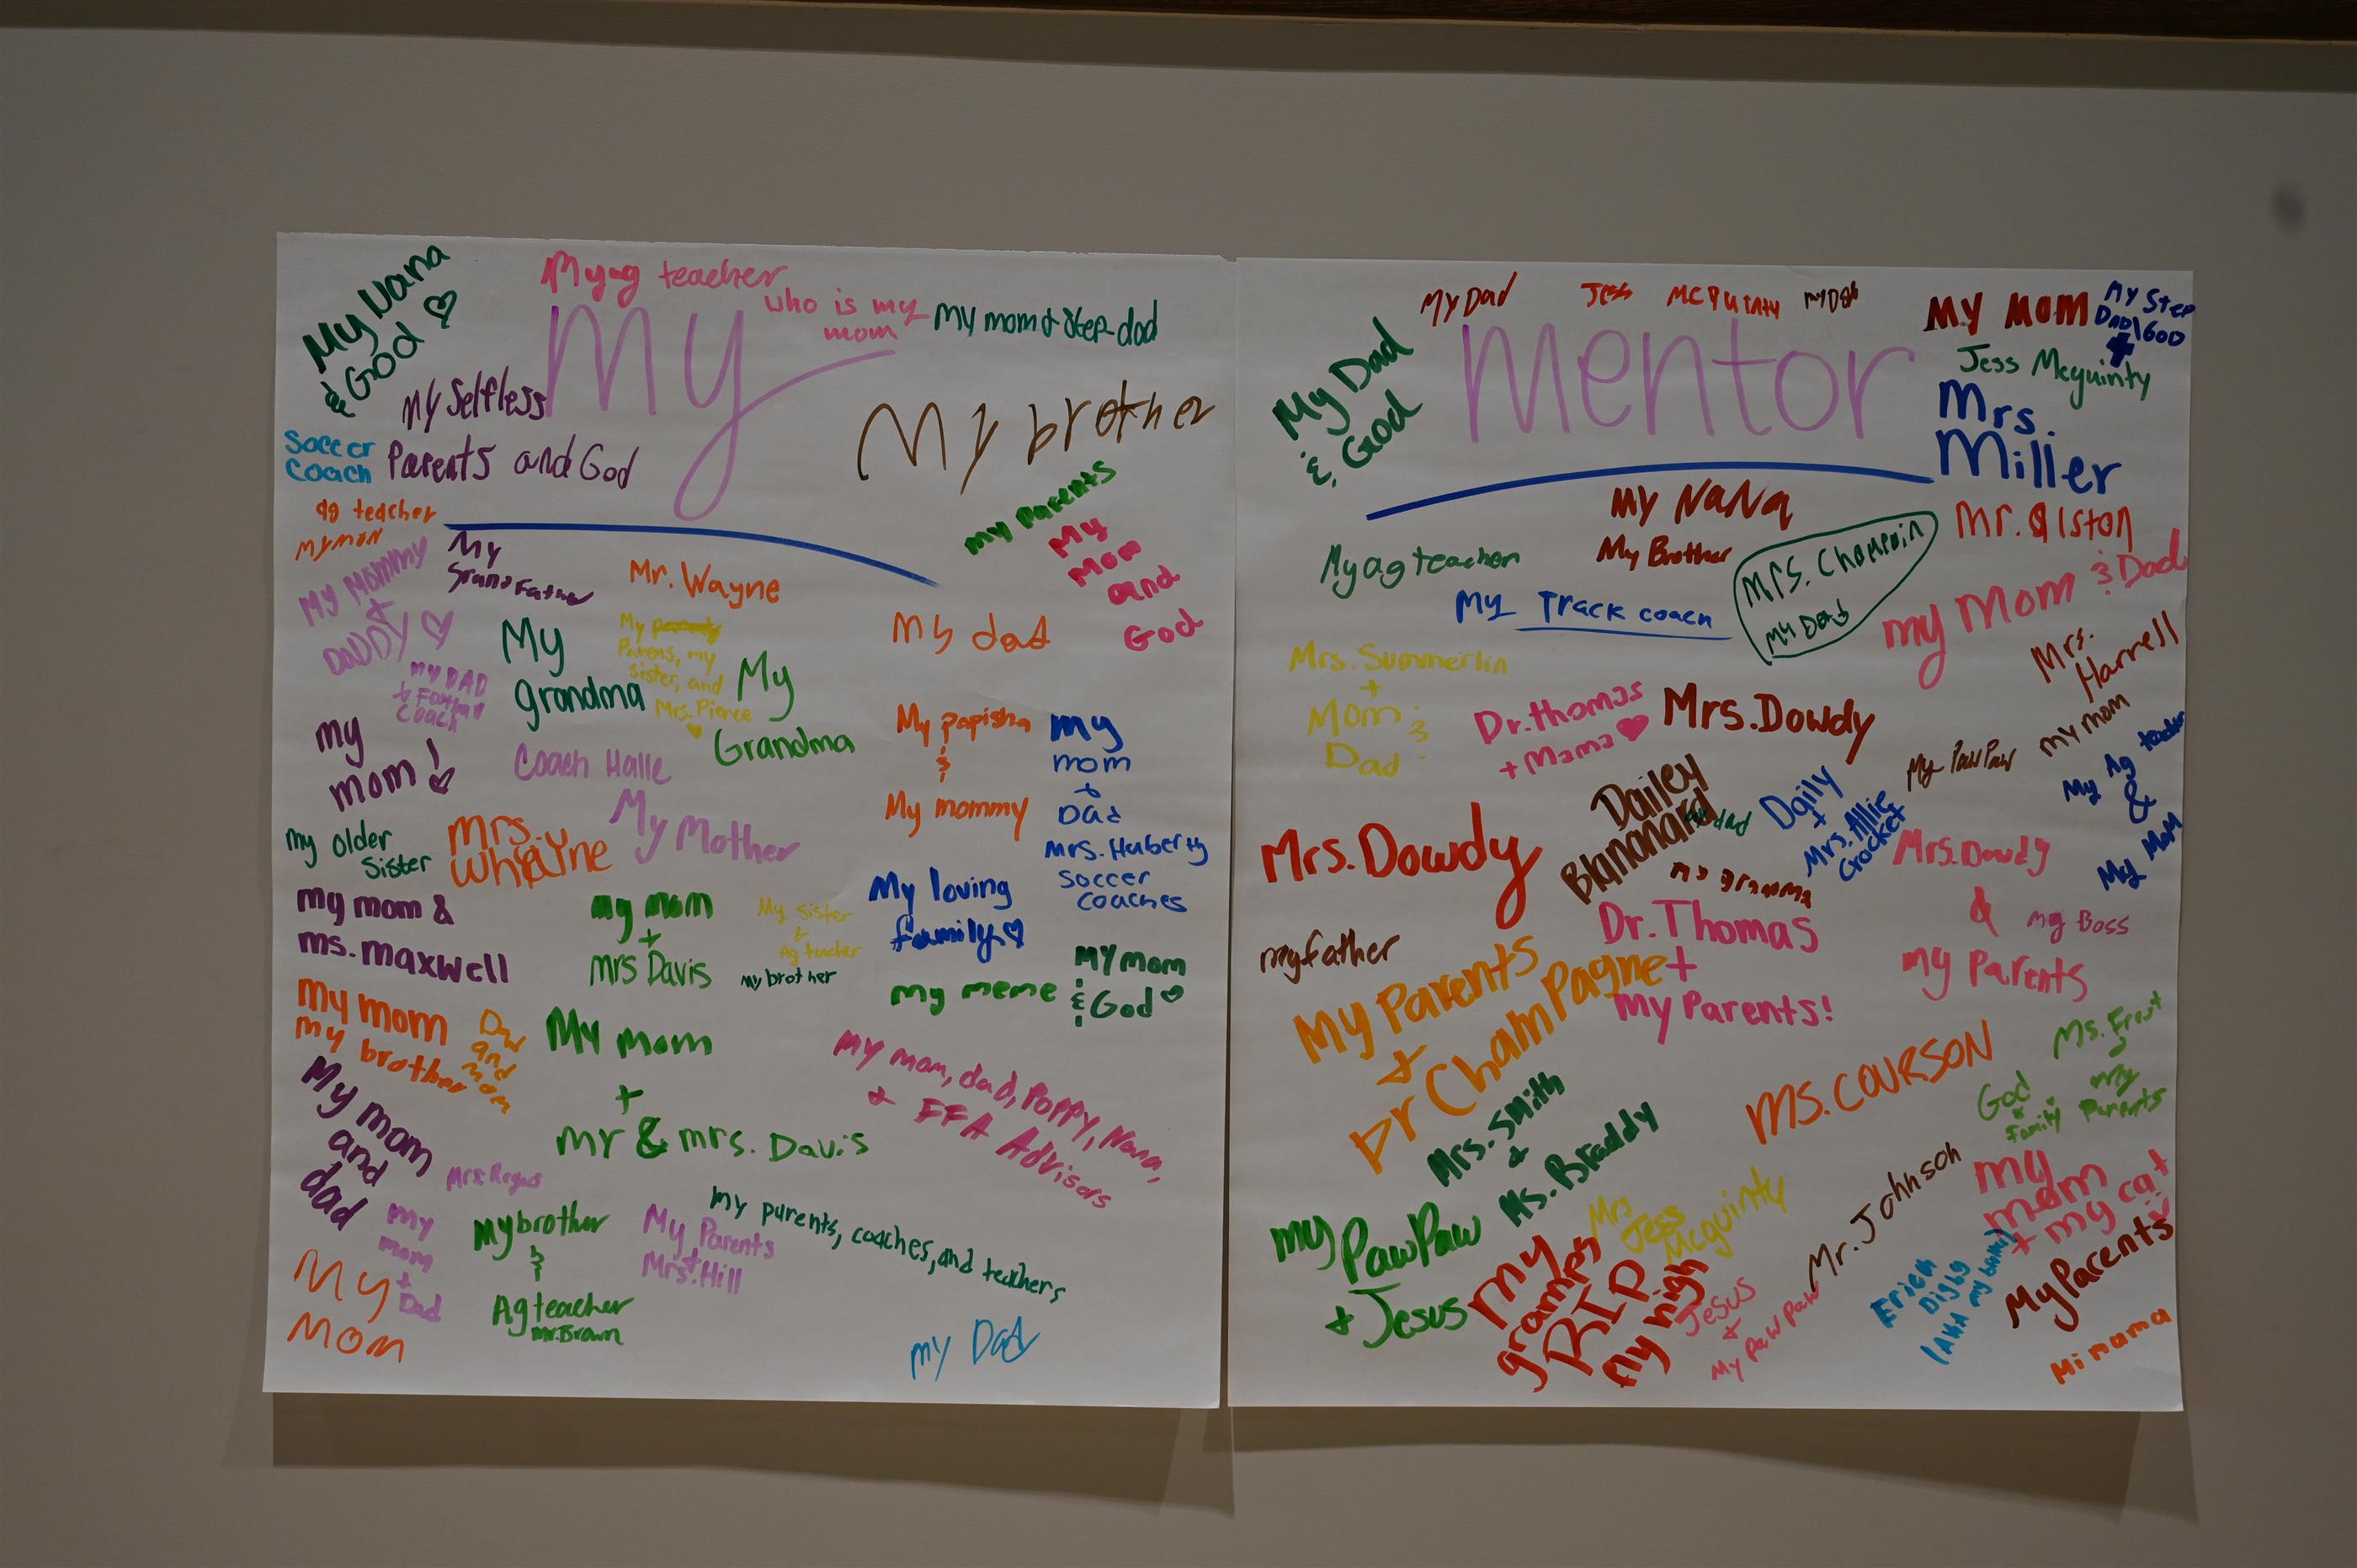 My Nana
& God ♡
My ag teacher
who is my
mom
my mom & Step-dad
My
My Selfless
Parents and God
Soccer
Coach
My brother
ag teacher
my mom
My Parents
My
Mom
and
God
My Mommy
+
DADDY ♡
My
Grandfather
Mr. Wayne
My dad
My
grandma
Parens, my
sister, and
Mrs. Pierce
My
Grandma
MY DAD
+ Football
Coach
my
mom!
Coach Halle
My papisha
&
My mommy
my
mom
+
Dad
Mrs. Huberty
Soccer
coaches
My Mother
my older
Sister
Mrs.
Whayne
my mom &
ms. maxwell
my mom
+
mrs Davis
My sister
&
Ag teacher
my brother
My loving
family ♡
my meme
My mom
& God ♡
My mom
my brother
Dad
and
mom
My mom
+
mr & mrs. Davis
My mom, dad, Poppy, Nana,
+ FFA Advisors
My mom
and
dad
my
mom
+
Dad
My brother
&
Ag teacher
Mr. Brown
My Parents
+
Mrs. Hill
My parents, coaches, and teachers
My
Mom
my Dad
My Dad
Jess McGuinty
My Dad
My Mom
My Step
Dad\God
+
Jess Mcguinty
My Dad
& God
mentor
Mrs.
Miller
My NaNa
My Brother
Mr. Alston
My ag teacher
My Track coach
Mrs. Champoin
My Dad
my Mom & Dad
Mrs.
Harrell
Mrs. Summerlin
+
Mom &
Dad
Dr. thomas
+ Mama ♥
Mrs. Dowdy
my mom
My PawPaw
My Ag teacher
&
My Mom
Mrs. Dowdy
Dailey
Blanonard
my dad
Daily
+
Mrs. Allie
Crocket
my grandma
Mrs. Dowdy
&
my Parents
my Boss
my father
Dr. Thomas
+
My Parents!
My Parents
+
Dr Champagne
Ms. Frost
+
my
Parents
God
&
family
Ms. COURSON
Mrs. Smith
+
Ms. Braddy
my PawPaw
+ Jesus
Mrs
Jess
Mcguinty
Mr. Johnson
my
mom
+ my cat
My Parents
my
gramps
RIP
my nigh
Jesus
+
My paw paw
Erick
Digby
(AKA my bonus)
Mi mama